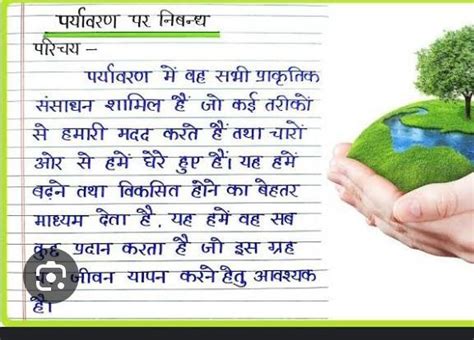 पर्यावरण पर निबन्ध
परिचय –
पर्यावरण में वह सभी प्राकृतिक
संसाधन शामिल हैं जो कई तरीकों
से हमारी मदद करते हैं तथा चारों
ओर से हमें घेरे हुए हैं। यह हमें
बढ़ने तथा विकसित होने का बेहतर
माध्यम देता है, यह हमें वह सब
कुछ प्रदान करता है जो इस ग्रह
जीवन यापन करने हेतु आवश्यक
है।